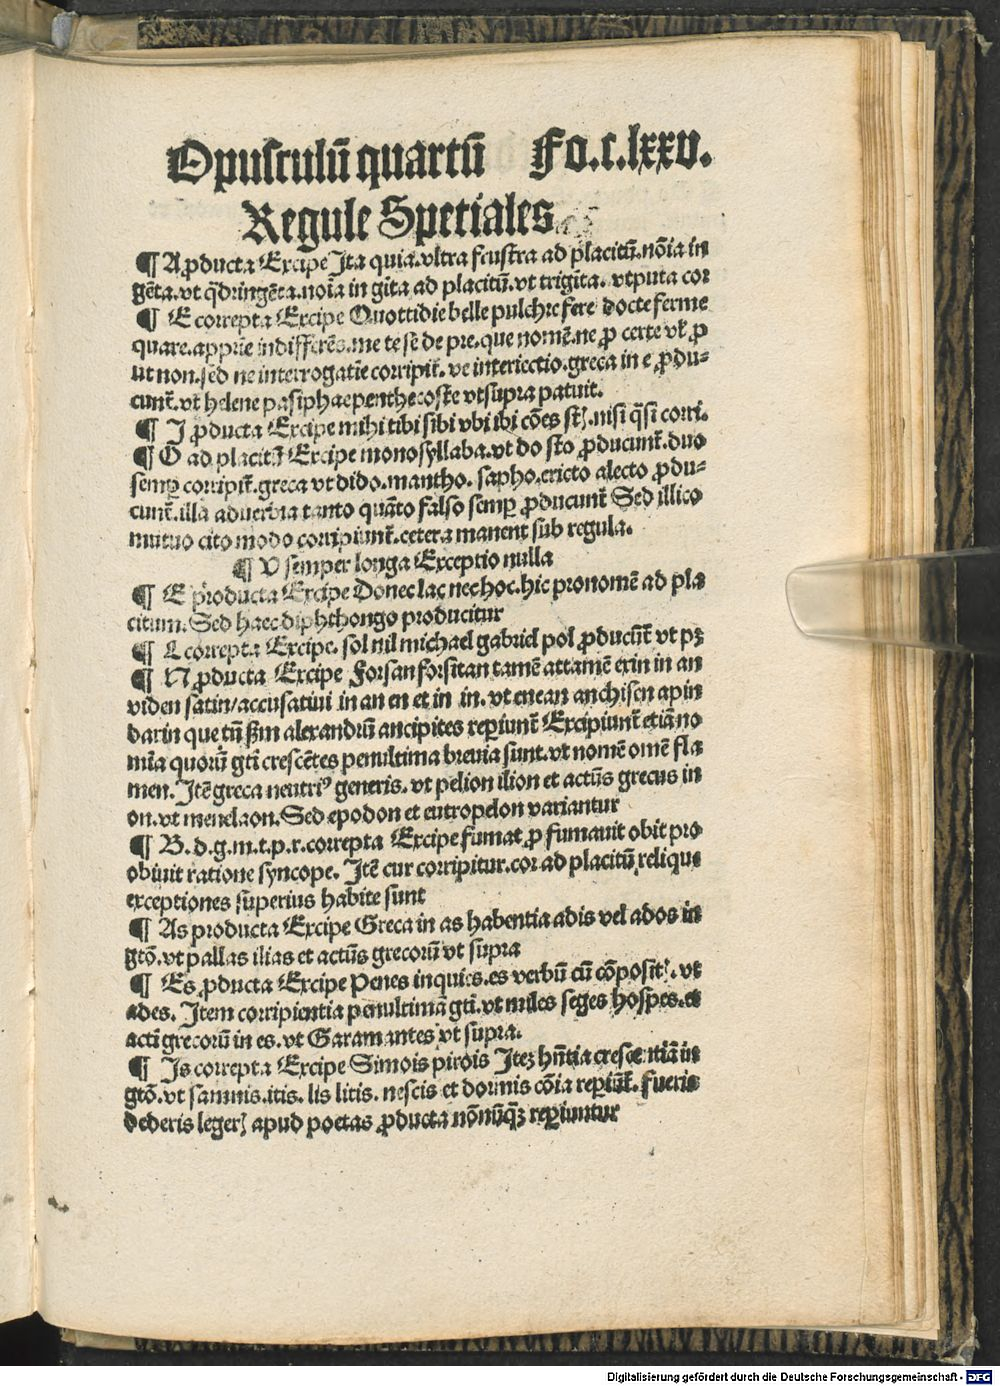 Opusculū quartū Fo.c.lxxv.
Regule Spetiales
¶ A ꝓducta Excipe Ita quia.vltra frustra ad placitū.nōia in
gēta.vt q̄dringēta.noīa in gita ad placitū.vt trigīta. vtputa cor
¶ E correpta Excipe Quottidie belle pulchre fere docte ferme
quare.apprīe indifferēs.me te se de pre.que nomē.ne ꝓ certe vł ꝓ
ut non.sed ne interrogatīe corripit̄. ve interiectio.greca in e ꝓdu-
cunt̄.vt helene pasiphae penthecoste vt supra patuit.
¶ I ꝓducta Excipe mihi tibi sibi vbi ibi cōes st̄.nisi q̄si corri.
¶ O ad placitū Excipe monosyllaba.vt do sto ꝓducunt̄.duo
semꝑ corripit̄.greca vt dido.mantho. sapho.ericto alecto ꝓdu-
cunt̄.illa aduerbia tanto quāto falso semꝑ ꝓducunt̄ Sed illico
mutuo cito modo corripiunt̄.cetera manent sub regula.
¶ V semper longa Exceptio nulla
¶ E producta Excipe Donec lac nec hoc.hic pronomē ad pla
citum. Sed haec diphthongo producitur
¶ L correpta Excipe. sol nil michael gabriel pol ꝓducūt̄ vt pꝫ
¶ N ꝓducta Excipe Forsan forsitan tamē attamē exin in an
viden satin/accusatiui in an en et in in. vt enean anchisen apin
darin que tū ẜm alexandrū ancipites reꝑiunt̄ Excipiunt̄ etiā no
mīa quorū gtī crescētes penultima breuia sunt.vt nomē omē fla
men. Itē greca neutriꝰ generis.vt pelion ilion et actūs grecus in
on.vt menelaon.Sed epodon et eutropelon variantur
¶ B.d.g.m.t.p.r.correpta Excipe fumat ꝓ fumauit obit pro
obiuit ratione syncope. Itē cur corripitur.cor ad placitū relique
exceptiones superius habite sunt
¶ As producta Excipe Greca in as habentia adis vel ados in
gtō.vt pallas ilias et actūs grecorū vt supra
¶ Es ꝓducta Excipe Penes inquies.es verbū cū cōposit. vt
ades. Item corripientia penultimā gtī.vt miles seges hospes.et
actī grecorū in es.vt Garamantes vt supra.
¶ Is correpta Excipe Simois pirois Itez hn̄tia crescentiā in
gtō.vt samnis.itis. lis litis. nescis et dormis cōia reꝑiūt̄. fueris
dederis leger apud poetas ꝓducta nōnūq̄ꝫ reꝑiuntur
Digitalisierung gefördert durch die Deutsche Forschungsgemeinschaft - DFG